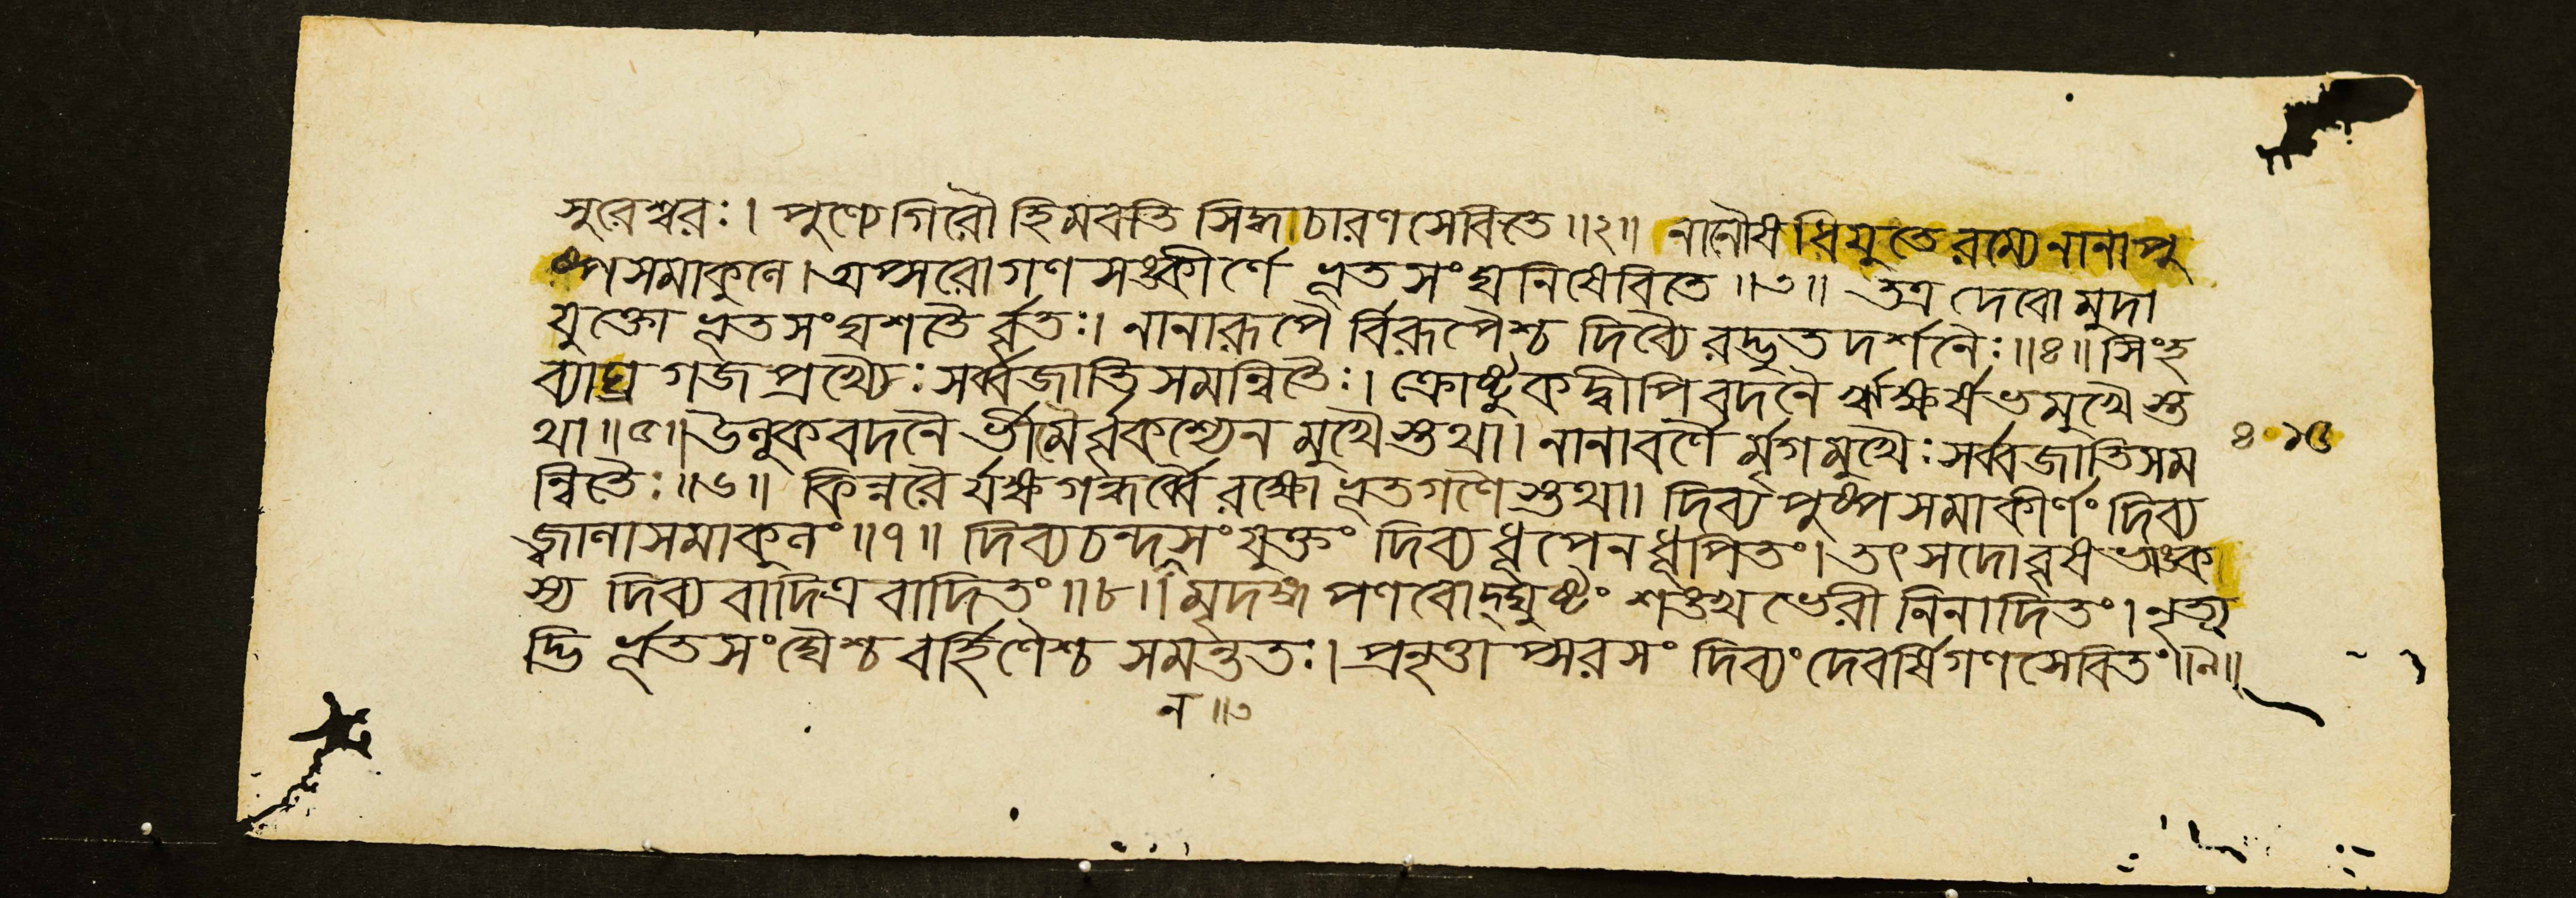 সুরেশ্বরঃ। পুণ্যে গিরৌ হিমবতি সিদ্ধচারণসেবিতে॥২॥ নানৌষধিযুতে রম্যে নানাপু
ষ্পসমাকুলে। অপ্সরোগণসঙ্কীর্ণে ভূতসংঘনিষেবিতে॥৩॥ তত্র দেবো মুদা
যুক্তো ভূতসংঘশতৈর্ব্বৃতঃ। নানারূপৈর্বিরূপৈশ্চ দিব্যৈরদ্ভুতদর্শনৈঃ॥৪॥ সিংহ
ব্যাঘ্রগজপ্রখ্যৈঃ সর্ব্বজাতিসমন্বিতৈঃ। ক্রোষ্টুকদ্বীপিবদনৈর্ঋক্ষর্ষভমুখৈস্ত
থা॥৫॥ উলূকবদনৈর্ভীমৈর্ব্বৃকশ্যেনমুখৈস্তথা। নানাবর্ণৈর্মৃগমুখৈঃ সর্ব্বজাতিসম
ন্বিতৈঃ॥৬॥ কিন্নরৈর্যক্ষগন্ধর্ব্বৈ রক্ষোভূতগণৈস্তথা। দিব্যপুষ্পসমাকীর্ণং দিব্য
জ্বালাসমাকুলং॥৭॥ দিব্যচন্দসংযুক্তং দিব্যধূপেন ধূপিতং। তৎ সদো বৃষভাঙ্ক
স্য দিব্যবাদিত্রবাদিতং॥৮॥ মৃদঙ্গপণবোদ্ঘুষ্টং শঙ্খভেরীনিনাদিতং। নৃত্য
দ্ভির্ভূতসংঘৈশ্চ বর্হিণৈশ্চ সমন্ততঃ। প্রনৃত্তাপ্সরসং দিব্যং দেবর্ষিগণসেবিতং॥৯॥
ন॥৩